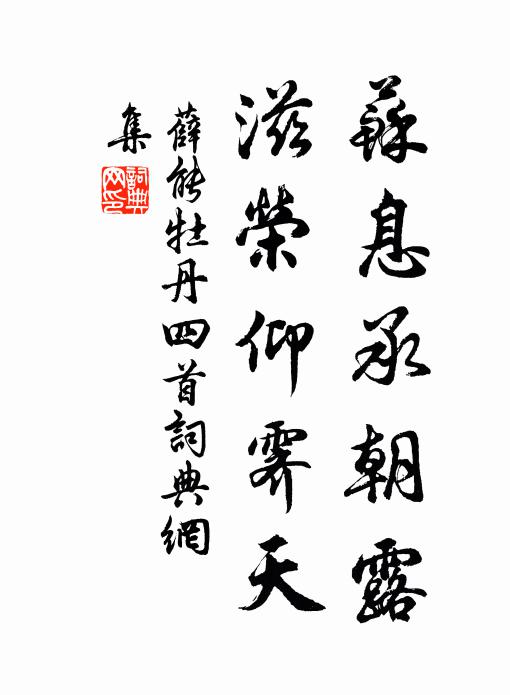 蘇息承朝露
滋榮仰霽天
薛能牡丹四首詞典網
集
詞典
网印